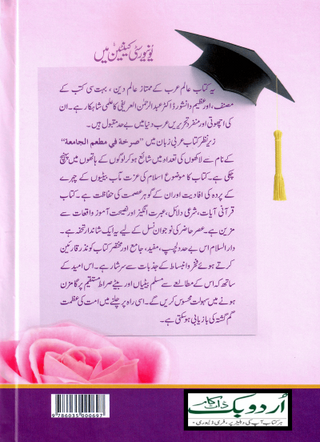 یونیورسٹی کینٹین میں
یہ کتاب عالم عرب کے ممتاز عالم دین، بہت سی کتب کے
مصنف، اور عظیم دانشور ڈاکٹر عبدالرحمٰن العریفی کا علمی شاہکار ہے۔ ان
کی اچھوتی اور منفرد تحریریں عرب دنیا میں بے حد مقبول ہیں۔
زیرِ نظر کتاب عربی زبان میں "صرخة في مطعم الجامعة"
کے نام سے لاکھوں کی تعداد میں شائع ہو کر لوگوں کے ہاتھوں میں پہنچ
چکی ہے۔ کتاب کا موضوع اسلام کی عزت مآب بیٹیوں کے چہرے
کے پردہ کی افادیت اور ان کے گوہرِ عصمت کی حفاظت ہے۔ کتاب
قرآنی آیات، شرعی دلائل، عبرت انگیز اور نصیحت آموز واقعات سے
مزین ہے۔ عصر حاضر کی نوجوان نسل کے لیے یہ ایک شاندار تحفہ ہے۔
دارالسلام اس بے حد دلچسپ، مفید، جامع اور مختصر کتاب کو نذرِ قارئین
کرتے ہوئے فخر و انبساط کے جذبات سے سرشار ہے۔ اس امید کے
ساتھ کہ اس کے مطالعے سے مسلم بیٹیاں اور بیٹے صراطِ مستقیم پر گامزن
ہونے میں سہولت محسوس کریں گے۔ اسی راہ پر چلنے میں امت کی عظمت
گم گشتہ کی بازیابی ہو سکتی ہے۔
9 786035 000697
اُردو بک
ڈاٹ کام
ہر کتاب آپ کی دہلیز پر، فری ڈلیوری